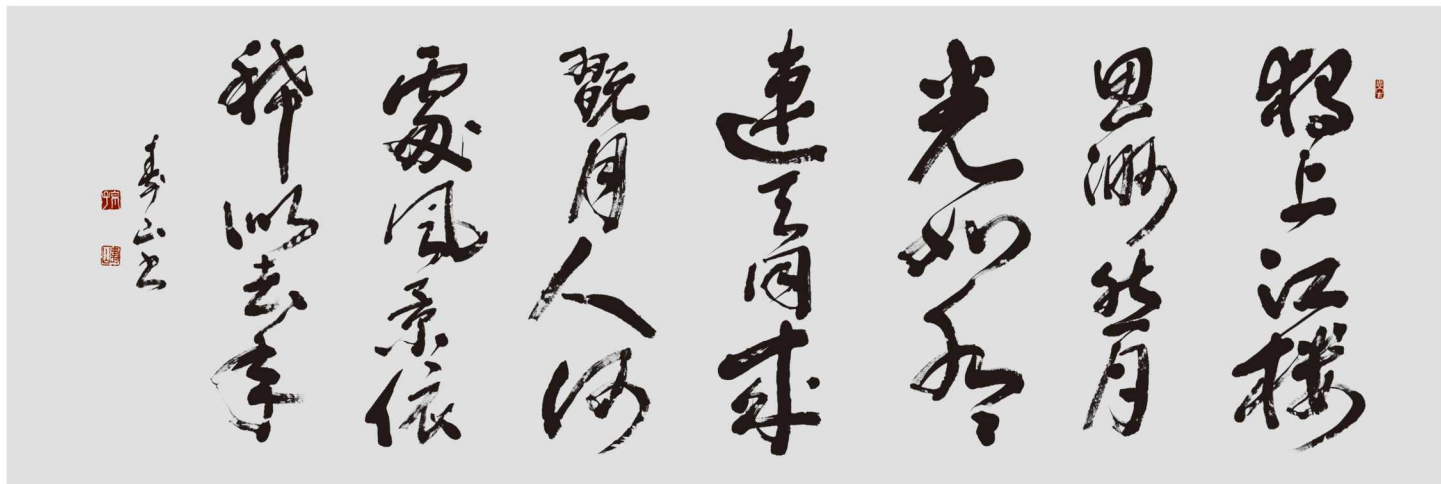 獨上江樓
思渺然月
光如水々
連天同來
翫月人何
處風景依
稀似去年
壽山书